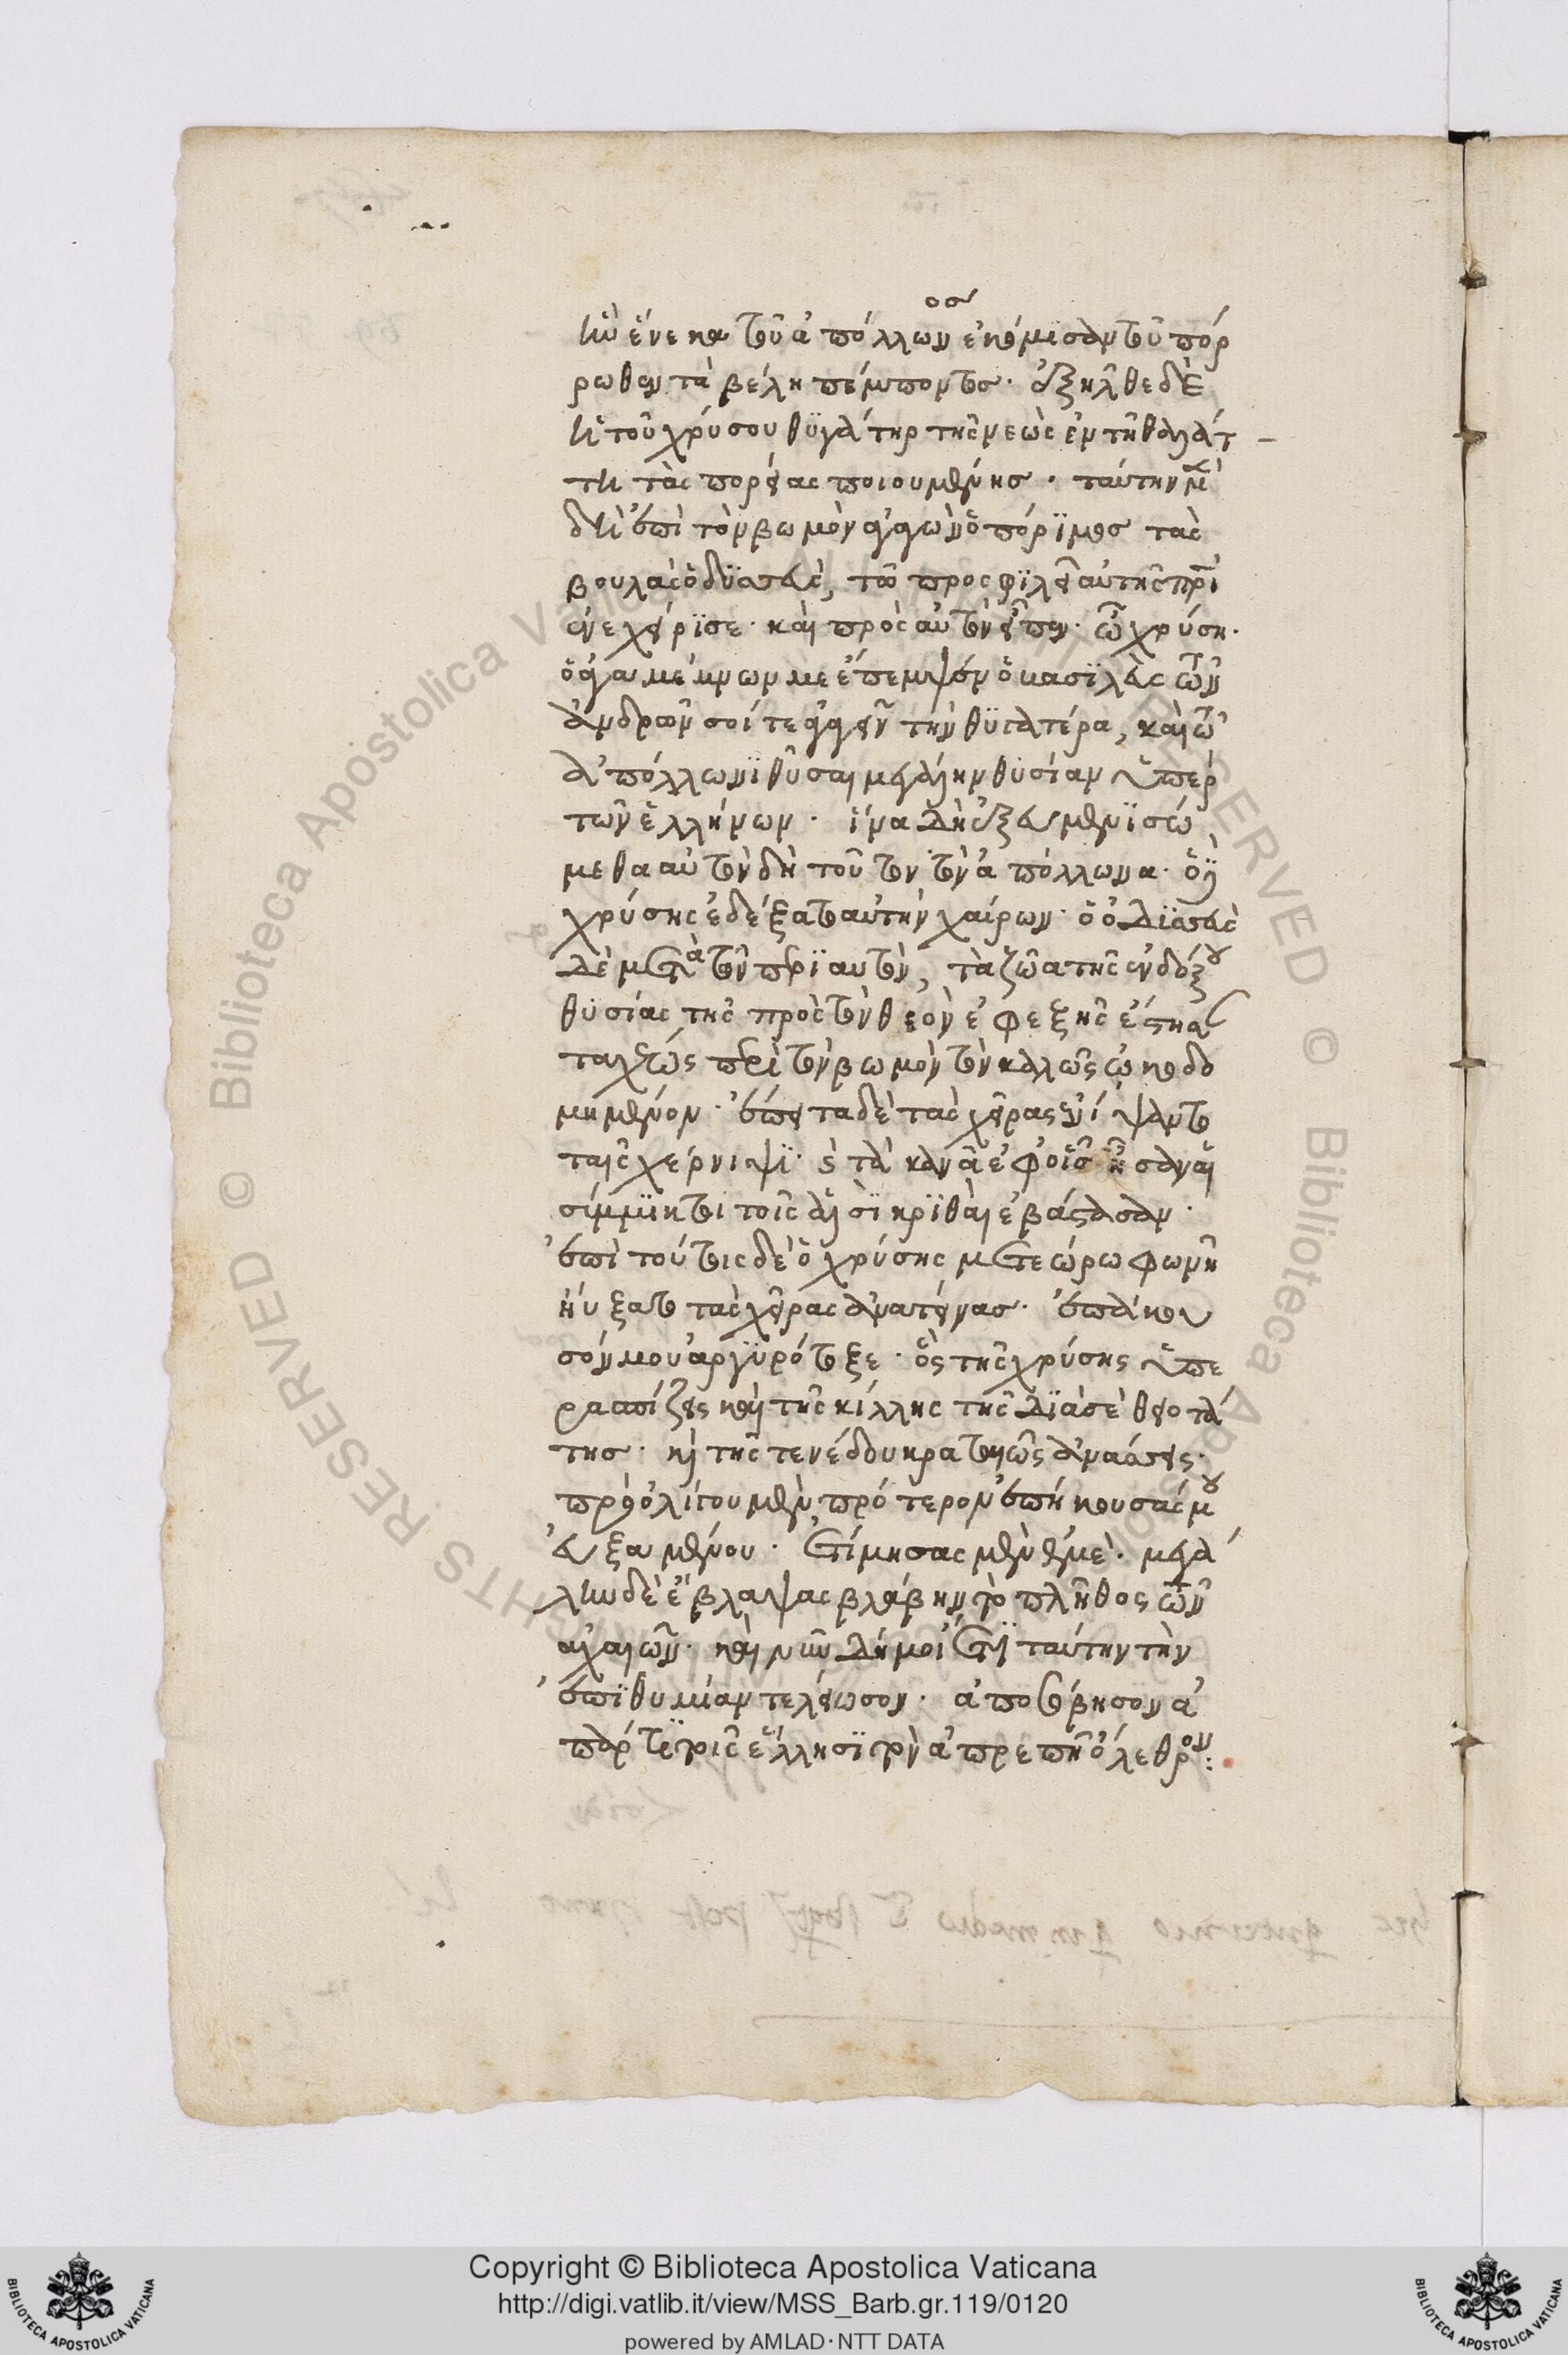 ἣν ἕνεκα τοῦ ἀπόλλωνος ἐκόμισαν τοῦ πόρ
ρωθεν τὰ βέλη πέμποντος· ἐξῆλθε δὲ
ἡ τοῦ χρύσου θϋγάτηρ τῆς νεὼς ἐν τῇ θαλάτ
τη τὰς πορείας ποιουμένης· ταύτην μὲν
δὴ ἐπὶ τὸν βωμὸν ἀγαγὼν ὁ πόρϊμος τὰς
βουλὰς ὀδϋσσεὺς, τῶ προσφϊλεῖ αὐτῆς πρὶ
ἐνεχείρϊσε· καὶ πρὸς αὐτὸν εἶπεν· ὦ χρύση·
ὁ ἀγαμέμνων με ἔπεμψεν ὁ βασϊλεὺς τῶν
ἀνδρῶν σοί τε ἀγαγεῖν τὴν θϋγατέρα, καὶ τῶ
ἀπόλλωνϊ θῦσαι μεγάλην θυσίαν ὑπὲρ
τῶν ἑλλήνων· ἵνα δὴ ἐξευμενϊσώ
μεθα αὐτὸν δὴ τοῦτον τὸν ἀπόλλωνα· ὁ
χρύσης ἐδέξατο αὐτὴν χαίρων· ὁ ὀδϋσσεὺς
δὲ μετὰ τῶν περϊ αυτὸν, τὰ ζῶα τῆς ἐνδόξου
θϋσίας τῆς πρὸς τὸν θεὸν ἐφεξῆς ἔστησαν
ταχέως περὶ τὸν βωμὸν τὸν καλῶς ὠκοδο
μημένον· ἔπειτα δὲ τὰς χεῖρας ἐνίψαντο
ταῖς χέρνιψϊ· καὶ τὰ κανᾶ ἐφ οἷς ἦσαν αἱ
σύμμϊκτοι τοῖς ἁλσὶ κρϊθαὶ ἐβάστασαν·
ἐπὶ τούτοις δὲ ὁ χρύσης μετεώρω φωνῆ
ηὔξατο τὰς χεῖρας ἀνατείνας· ἐπάκου
σόν μου ἀργϋρότοξε· ὃς τῆς χρύσης ὑπε
ρασπίζεις καὶ τῆς κίλλης τῆς
της· καὶ τῆς τενέδου κρατηῶς ἀνάσσεις·
πρὸ ὀλίγου μὲν πρότερον ἐπήκουσάς μου
εὐξαμένου· ἐτίμησας μὲν ἐμὲ· μεγά
λην δὲ ἔβλαψας βλάβην τὸ πλῆθος τῶν
ἀχαιῶν· καὶ νῦν δή μοι ἔτϊ ταύτην τὴν
ἐπϊθυμίαν τελείωσον· ἀποσόβησον ἀ
πάρτϊ τοῖς ἕλλησϊ τὸν ἀπρεπῆ ὄλεθρον:
Copyright © Biblioteca Apostolica Vaticana
http://digi.vatlib.it/view/MSS_Barb.gr.119/0120
powered by AMLAD·NTT DATA